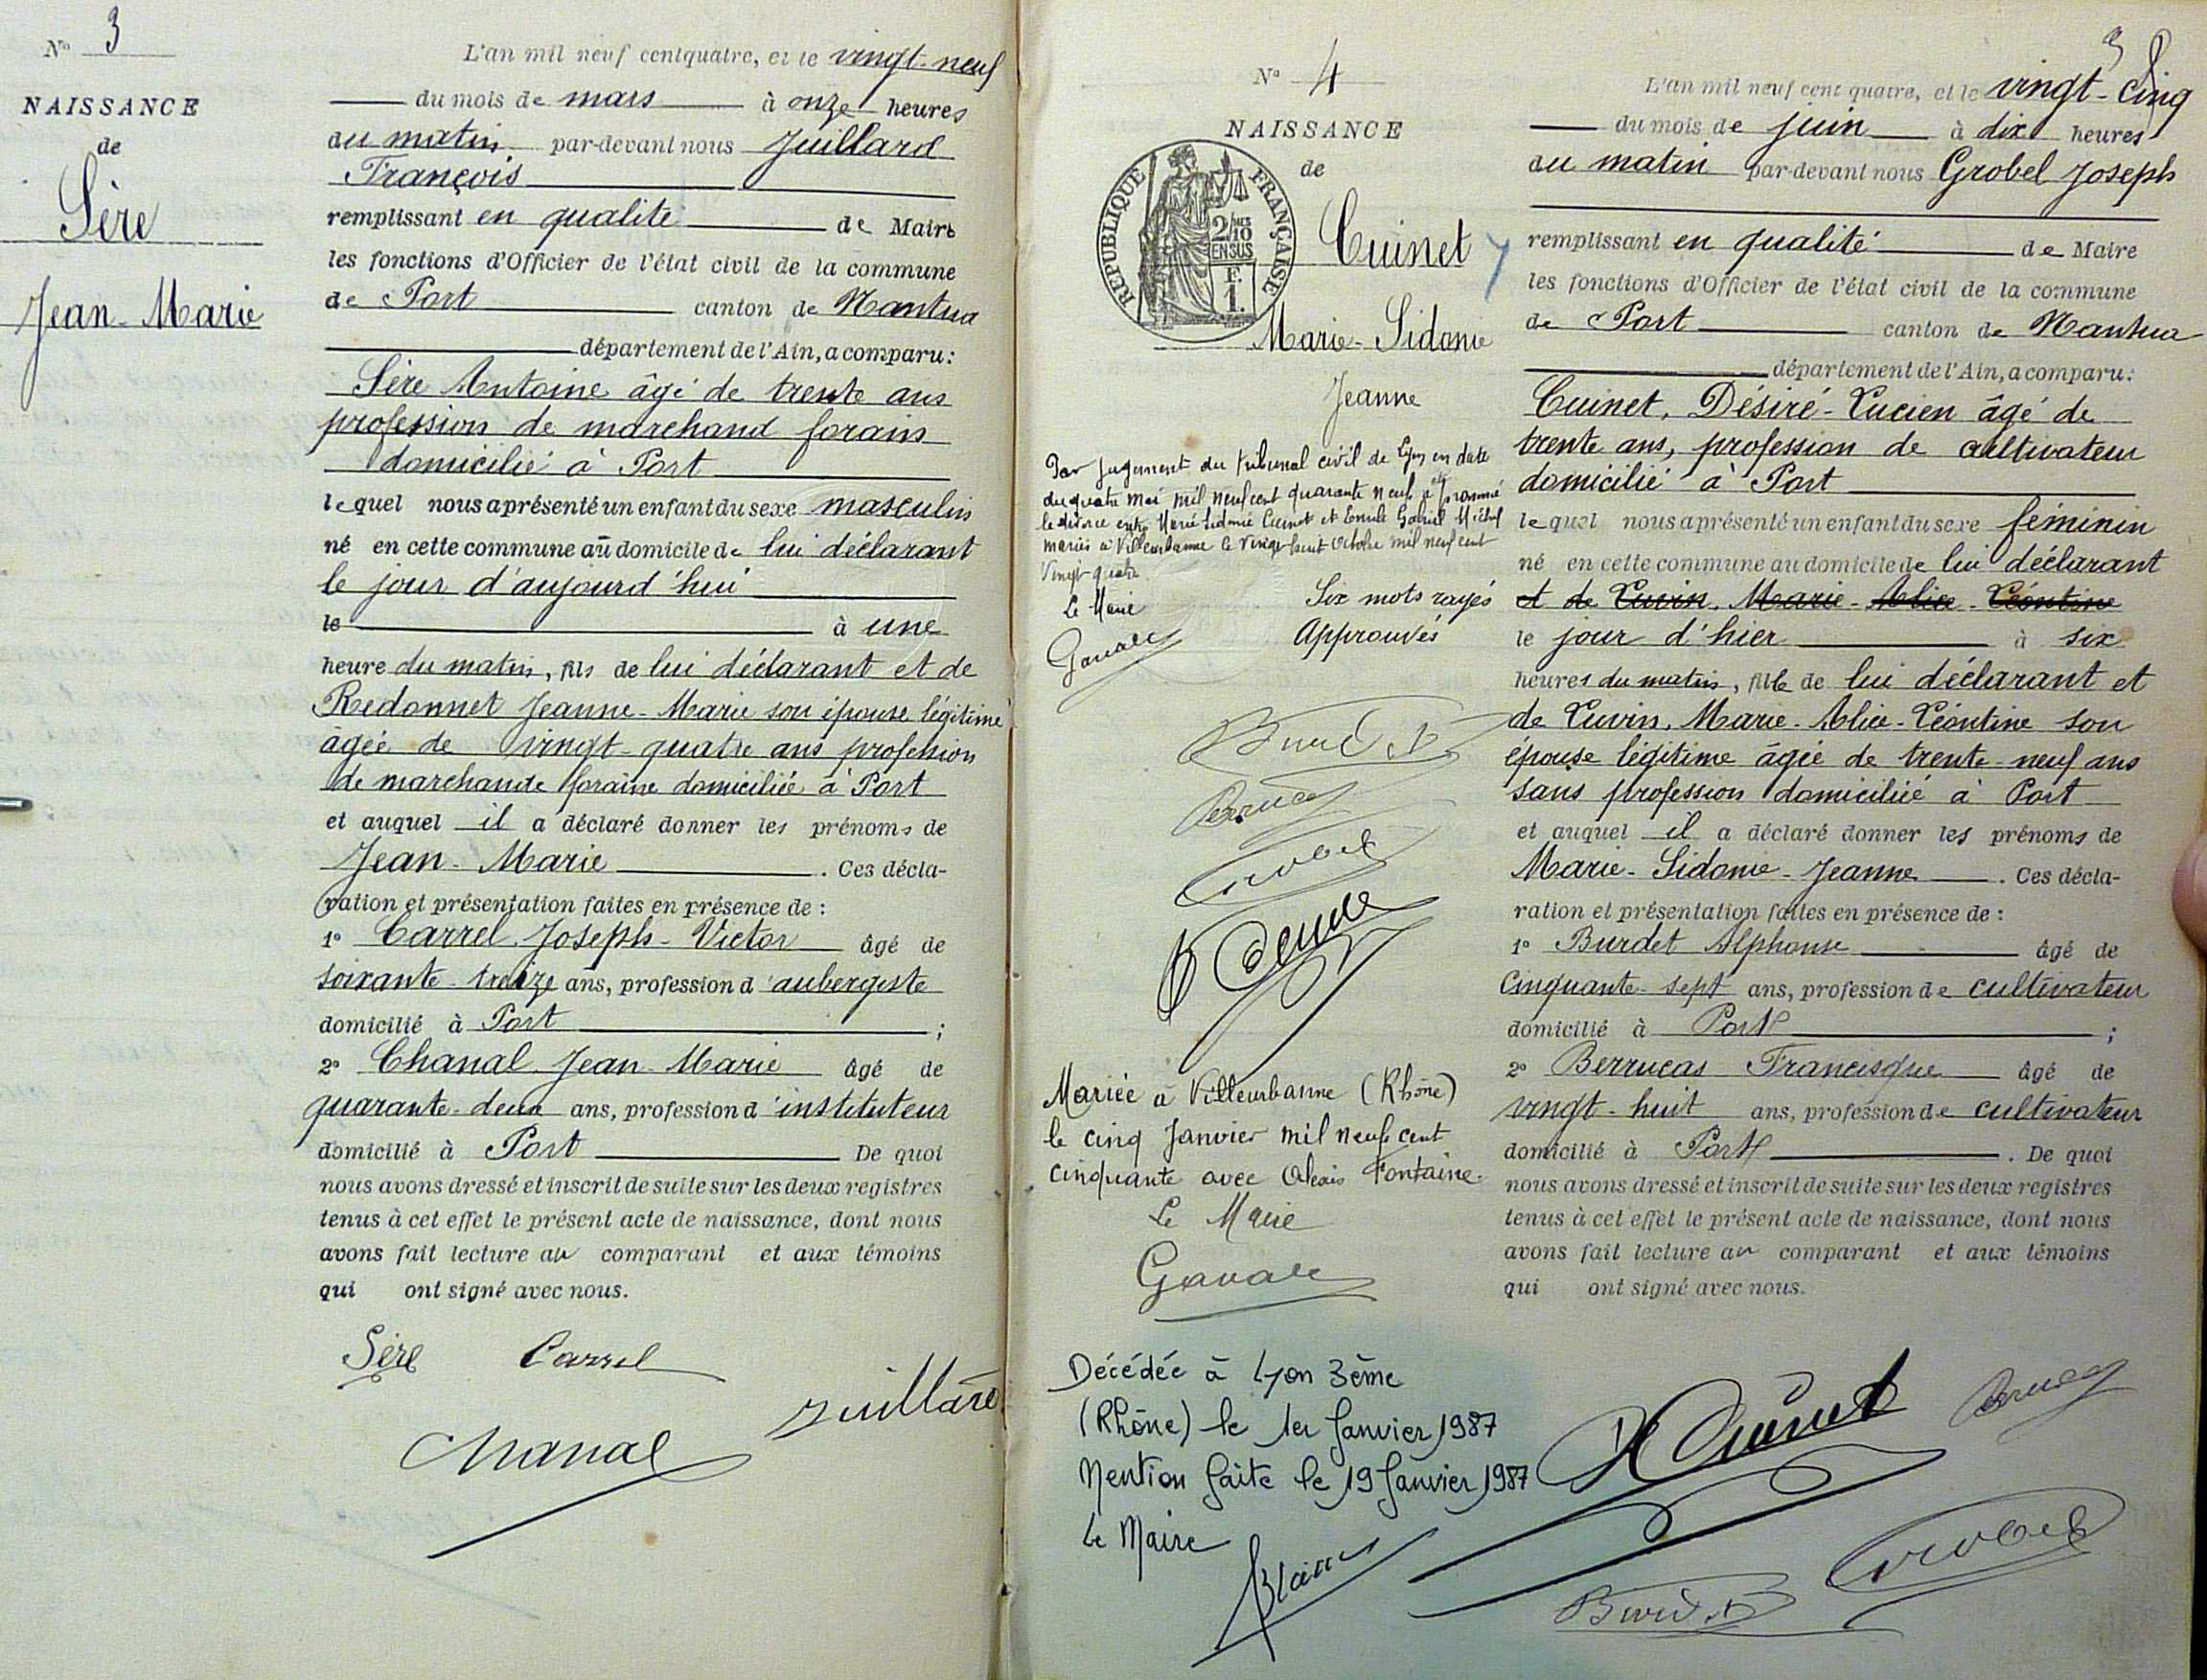 N° 3
NAISSANCE
de
Sère
Jean-Marie
L'an mil neuf cent quatre, et le vingt-neuf
du mois de mars à onze heures
du matin par-devant nous Juillard
François
remplissant en qualité de Maire
les fonctions d'Officier de l'état civil de la commune
de Port canton de Nantua
département de l'Ain, a comparu:
Sère Antoine âgé de trente ans
profession de marchand forain
domicilié à Port
lequel nous a présenté un enfant du sexe masculin
né en cette commune au domicile de lui déclarant
le jour d'aujourd'hui
le à une
heure du matin, fils de lui déclarant et de
Redonnet Jeanne-Marie son épouse légitime
âgée de vingt-quatre ans profession
de marchande foraine domiciliée à Port
et auquel il a déclaré donner les prénoms de
Jean-Marie. Ces décla-
ration et présentation faites en présence de :
1° Carrel Joseph-Victor âgé de
soixante-treize ans, profession d'aubergiste
domicilié à Port ;
2° Chanal Jean-Marie âgé de
quarante-deux ans, profession d'instituteur
domicilié à Port De quoi
nous avons dressé et inscrit de suite sur les deux registres
tenus à cet effet le présent acte de naissance, dont nous
avons fait lecture au comparant et aux témoins
qui ont signé avec nous.
Sère Carrel
Juillard
Chanal
3
N° 4
NAISSANCE
de
REPUBLIQUE FRANÇAISE
2/10 EN SUS
F. 1.
Cuinet
Marie-Sidonie
Jeanne
Par jugement du tribunal civil de Lyon en date
du quatre mai mil neuf cent quarante neuf a été prononcé
le divorce entre Marie Sidonie Cuinet et Emile Gabriel Michel
mariés à Villeurbanne le vingt huit octobre mil neuf cent
vingt quatre
Le Maire
Six mots rayés
Approuvés
Burdet
Berrucas
Grobel
Mariée à Villeurbanne (Rhône)
le cinq Janvier mil neuf cent
cinquante avec Alexis Fontaine.
Le Maire
Décédée à Lyon 3ème
(Rhône) le 1er Janvier 1987
Mention faite le 19 Janvier 1987
Le Maire
L'an mil neuf cent quatre, et le vingt-cinq
du mois de juin à dix heures
du matin par-devant nous Grobel Joseph
remplissant en qualité de Maire
les fonctions d'Officier de l'état civil de la commune
de Port canton de Nantua
département de l'Ain, a comparu:
Cuinet, Désiré-Lucien âgé de
trente ans, profession de cultivateur
domicilié à Port
lequel nous a présenté un enfant du sexe féminin
né en cette commune au domicile de lui déclarant
et de Cuvin, Marie-Alice-Léontine
le jour d'hier à six
heures du matin, fille de lui déclarant et
de Cuvin, Marie-Alice-Léontine son
épouse légitime âgée de trente-neuf ans
sans profession domiciliée à Port
et auquel il a déclaré donner les prénoms de
Marie-Sidonie-Jeanne. Ces décla-
ration et présentation faites en présence de :
1° Burdet Alphonse âgé de
cinquante-sept ans, profession de cultivateur
domicilié à Port ;
2° Berrucas Francisque âgé de
vingt-huit ans, profession de cultivateur
domicilié à Port. De quoi
nous avons dressé et inscrit de suite sur les deux registres
tenus à cet effet le présent acte de naissance, dont nous
avons fait lecture au comparant et aux témoins
qui ont signé avec nous.
D Cuinet Berrucas
Grobel
Burdet